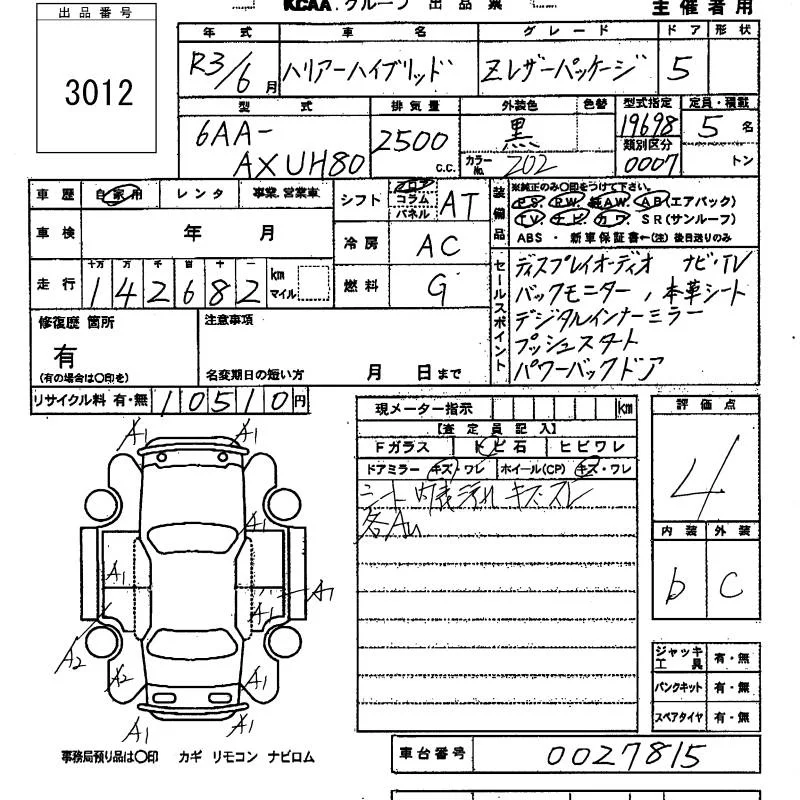 KCAA.グループ 出品票
主催者用
出品番号
3012
年式 車名 グレード ドア 形状
R3/6月 ハリアーハイブリッド Zレザーパッケージ 5
型式 排気量 外装色 色替 型式指定 定員・積載
6AA-AXUH80 2500 C.C. 黒 カラーNo. 202 19698 5名
類別区分 0007 トン
車歴 自家用 レンタ 事業.営業車
シフト フロア コラム パネル AT
装備品 ※純正のみ〇印をつけて下さい。
P.S. P.W. 純AW. AB(エアバック)
TV ナビ カワ SR(サンルーフ)
ABS・新車保証書←(注)後日送りのみ
車検 年 月
冷房 AC
走行 十万 万 千 百 十 一
142682 km マイル
燃料 G
セールスポイント
ディスプレイオーディオ ナビ・TV
バックモニター、本革シート
デジタルインナーミラー
プッシュスタート
パワーバックドア
修復歴 箇所
有
(有の場合は〇印を)
注意事項
名変期日の短い方 月 日まで
リサイクル料 有・無 10510円
現メーター指示 km
【査定員記入】
Fガラス トビ石 ヒビワレ
ドアミラー キズ・ワレ ホイール(CP) キズ・ワレ
シート 内表汚れ キズ・スレ
各AU
評価点
4
内装 外装
b C
A1 A1
A1
A1
A1 A1
A2
A2 A1
A1 A1
ジャッキ工具 有・無
パンクキット 有・無
スペアタイヤ 有・無
事務局預り品は〇印 カギ リモコン ナビロム
車台番号 0027815